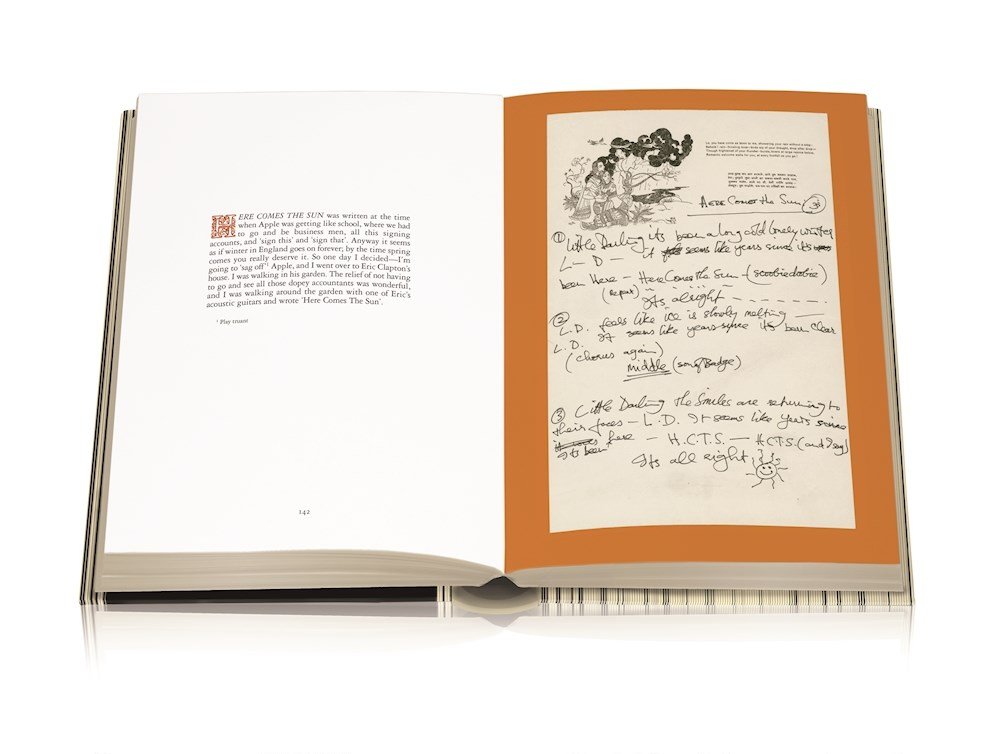 HERE COMES THE SUN was written at the time
when Apple was getting like school, where we had
to go and be business men, all this signing
accounts, and 'sign this' and 'sign that'. Anyway it seems
as if winter in England goes on forever; by the time spring
comes you really deserve it. So one day I decided—I'm
going to 'sag off'¹ Apple, and I went over to Eric Clapton's
house. I was walking in his garden. The relief of not having
to go and see all those dopey accountants was wonderful,
and I was walking around the garden with one of Eric's
acoustic guitars and wrote 'Here Comes The Sun'.
¹ Play truant
142
HERE COMES The SUN
① Little Darling its been a long cold lonely winter
L — D — it seems like years since its
been Here — Here Comes the Sun — (scoobie doobie)
(repeat) Its alright — — — — — —
② L.D. feels like ice is slowly melting —
L.D. It seems like years since its been clear
(chorus again)
middle (song Badge)
③ Little Darling the Smiles are returning to
their faces — L.D. It seems like years since
Its been here — H.C.T.S. — H.C.T.S. (and I say)
Its all right